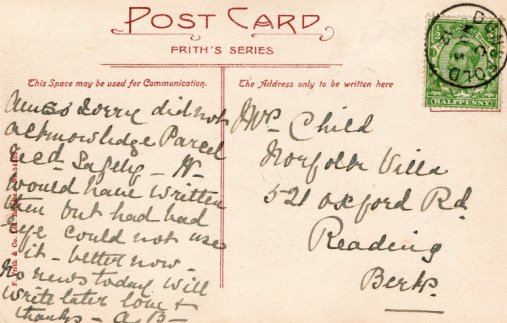 POST CARD
FRITH'S SERIES
This Space may be used for Communication.
The Address only to be written here
HALFPENNY
so sorry did not
acknowledge Parcel
recd. Safely - A
would have written
then but had bad
eye could not use
it - better now -
No news today will
write later love &
thanks - A B -
Mrs Child
Norfolk Villa
521 Oxford Rd
Reading
Berks